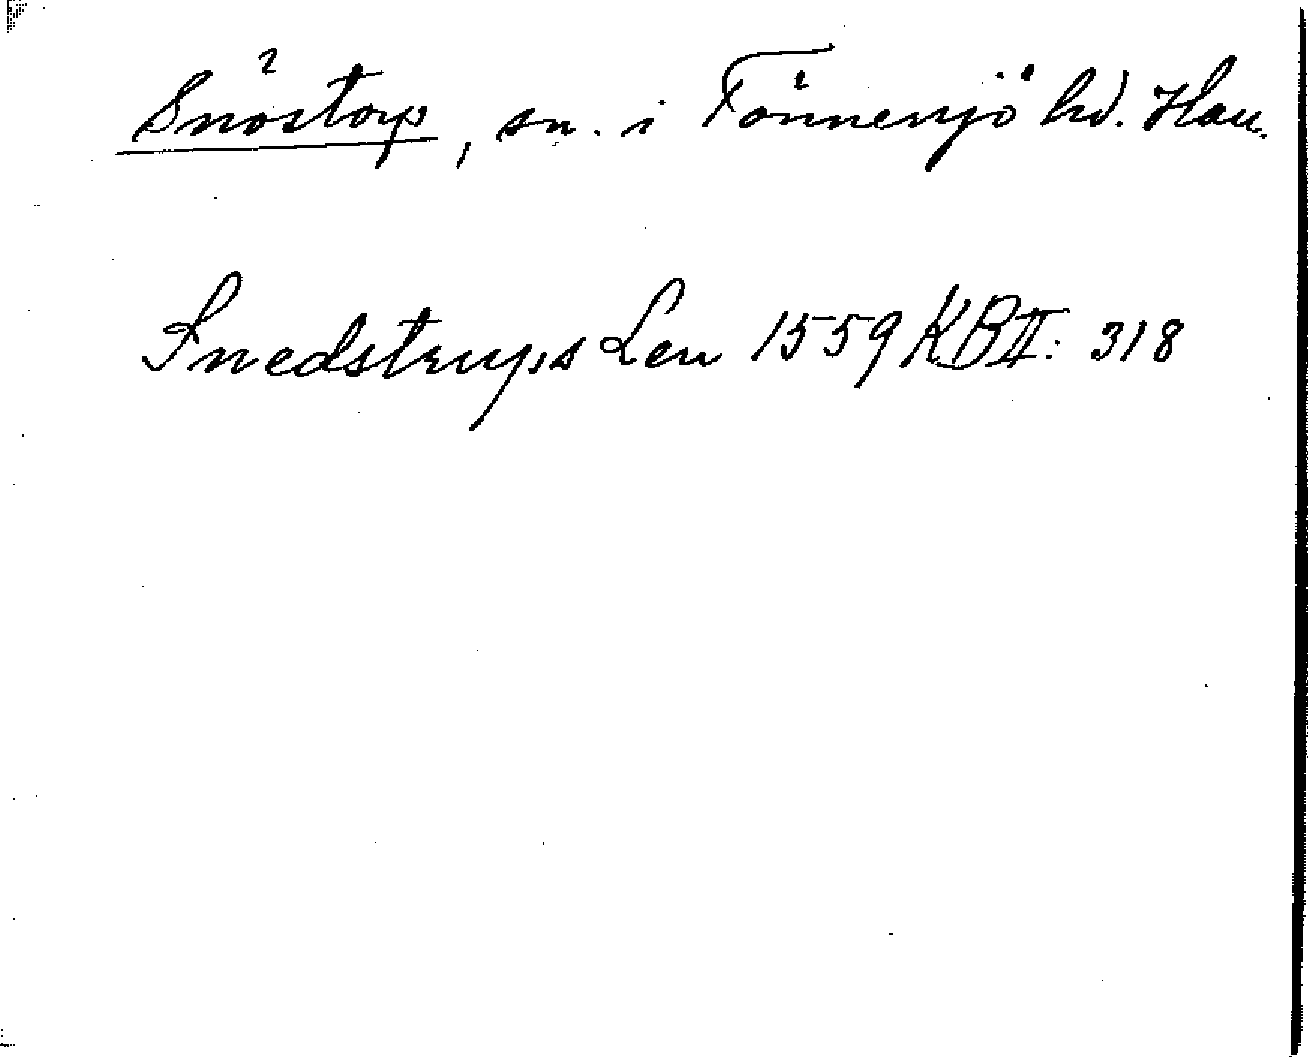 Snöstorp, sn. i Tönnersjö hd. Hall.
Snedstrups Len 1559 KB II: 318